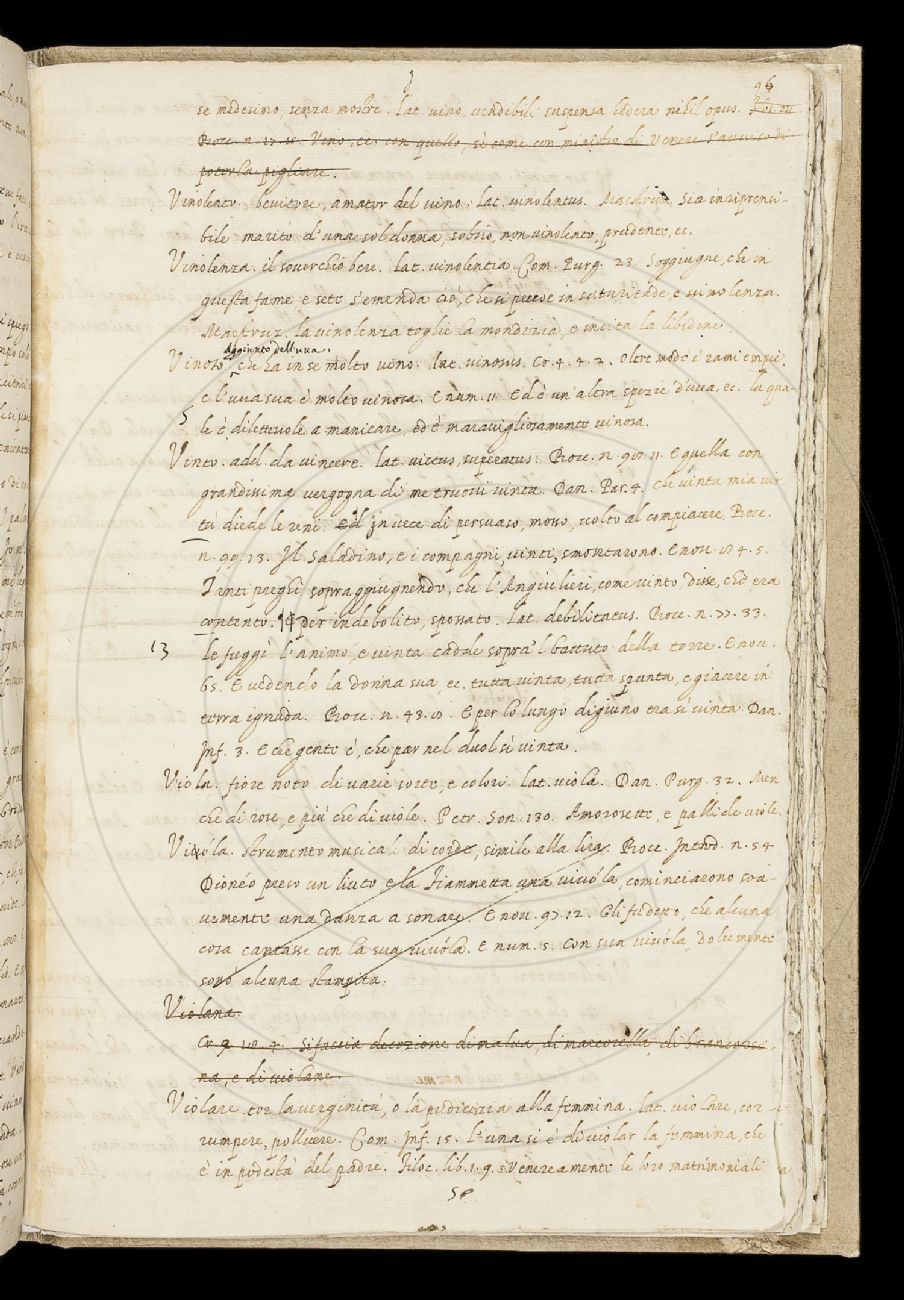 96
se medesimo, senza mostre. lat. vino vendibili suspensa hedera nihil opus.
Bocc. n. 27. Vino, ec. con quello, sì come con ministro di Venere
poterla pigliare.
Vinolento. bevitore, amator del vino. lat. vinolentus. Maestruz. Sia inriprensi-
bile marito d'una sol donna, sobrio, non vinolento, prudente, ec.
Vinolenza. il soverchio bere. lat. vinolentia. Com. Purg. 23. Soggiugne, che in
questa fame e sete s'emenda ciò, che si puose in saturitade, e vinolenza.
Maestruz. la vinolenza toglie la mondizia, e incita la libidine.
Aggiunto dell'uva.
Vinoso che ha in se molto vino. lat. vinosus. Cr. 4. 4. 2. Oltre modo i rami empie,
e l'uva sua è molto vinosa. E num. 11. Ed è un'altra spezie d'uva, ec. la qua-
5
le è dilettevole a manicare, ed è maravigliosamente vinosa.
Vinto. add. da vincere. lat. victus, superatus. Bocc. n. 90. 11. E quella con
grandissima vergogna di me truovi vinta. Dan. Par. 4. Che vinta mia vir-
tù diede le reni. in vece di persuaso, mosso, volto al compiacere. Bocc.
n. 99. 13. Il Saladino, e i compagni, vinti, smontarono. E nov. 4. 5.
Tanti preghi sopraggiugnendo, che l'Angiulieri, come vinto, disse, che era
contento. per indebolito, spossato. lat. debilitatus. Bocc. n. 77. 33.
13
le fuggì l'animo, e vinta cadde sopra 'l battuto della torre. E nov.
65. E vedendo la donna sua, ec. tutta vinta, tutta spunta, e giacere in
terra ignuda. Bocc. n. 43. E per lo lungo digiuno era sì vinta. Dan.
Inf. 3. E che gente è, che par nel duol sì vinta.
Viola. fiore noto di varie sorte, e colori. lat. viola. Dan. Purg. 32. Men
che di rose, e più che di viole. Petr. Son. 130. Amorosette, e pallide viole.
Viuóla. strumento musicale di corde, simile alla lira. Bocc. Introd. n. 54
Dionéo preso un liuto e la Fiammetta una vivuóla, cominciarono soa-
vemente una danza a sonare. E nov. 97. 12. Gli fu detto, che alcuna
cosa cantasse con la sua vivuóla. E num. 5. Con sua vivuóla dolcemente
sonò alcuna stampita.
Violana.
Cr. 9. 4. Si faccia decozione di malva, di marcorella, di brancorsi-
na, e di violane.
Violare. tor la verginità, o la pudicizia alla femmina. lat. violare, cor-
rumpere, polluere. Com. Inf. 15. L'una si è di violar la femmina, che
è in podestà del padre. Filoc. lib. 1. 9. Venereamente le loro matrimoniali